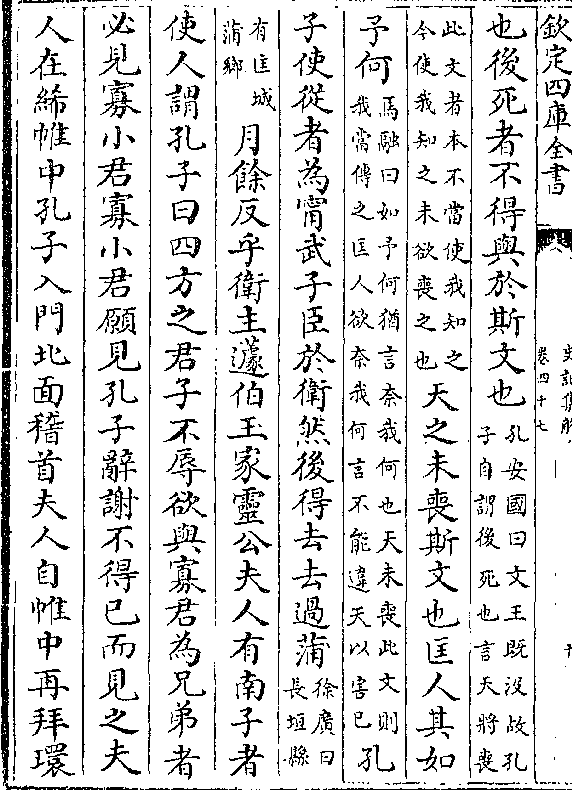 欽定四庫全書
史記集解
卷四十七
也後死者不得與於斯文也孔安國曰文王既没故孔子自謂後死也言天將喪
此文者本不當使我知之今使我知之未欲喪之也天之未喪斯文也匡人其如
予何馬融曰如予何猶言奈我何也天未喪此文則我當傳之匡人欲奈我何言不能違天以害己孔
子使從者為甯武子臣於衛然後得去去過蒲徐廣曰長垣縣
有匡城蒲鄉月餘反乎衛主蘧伯玉家靈公夫人有南子者
使人謂孔子曰四方之君子不辱欲與寡君為兄弟者
必見寡小君寡小君願見孔子辭謝不得已而見之夫
人在絺帷中孔子入門北面稽首夫人自帷中再拜環